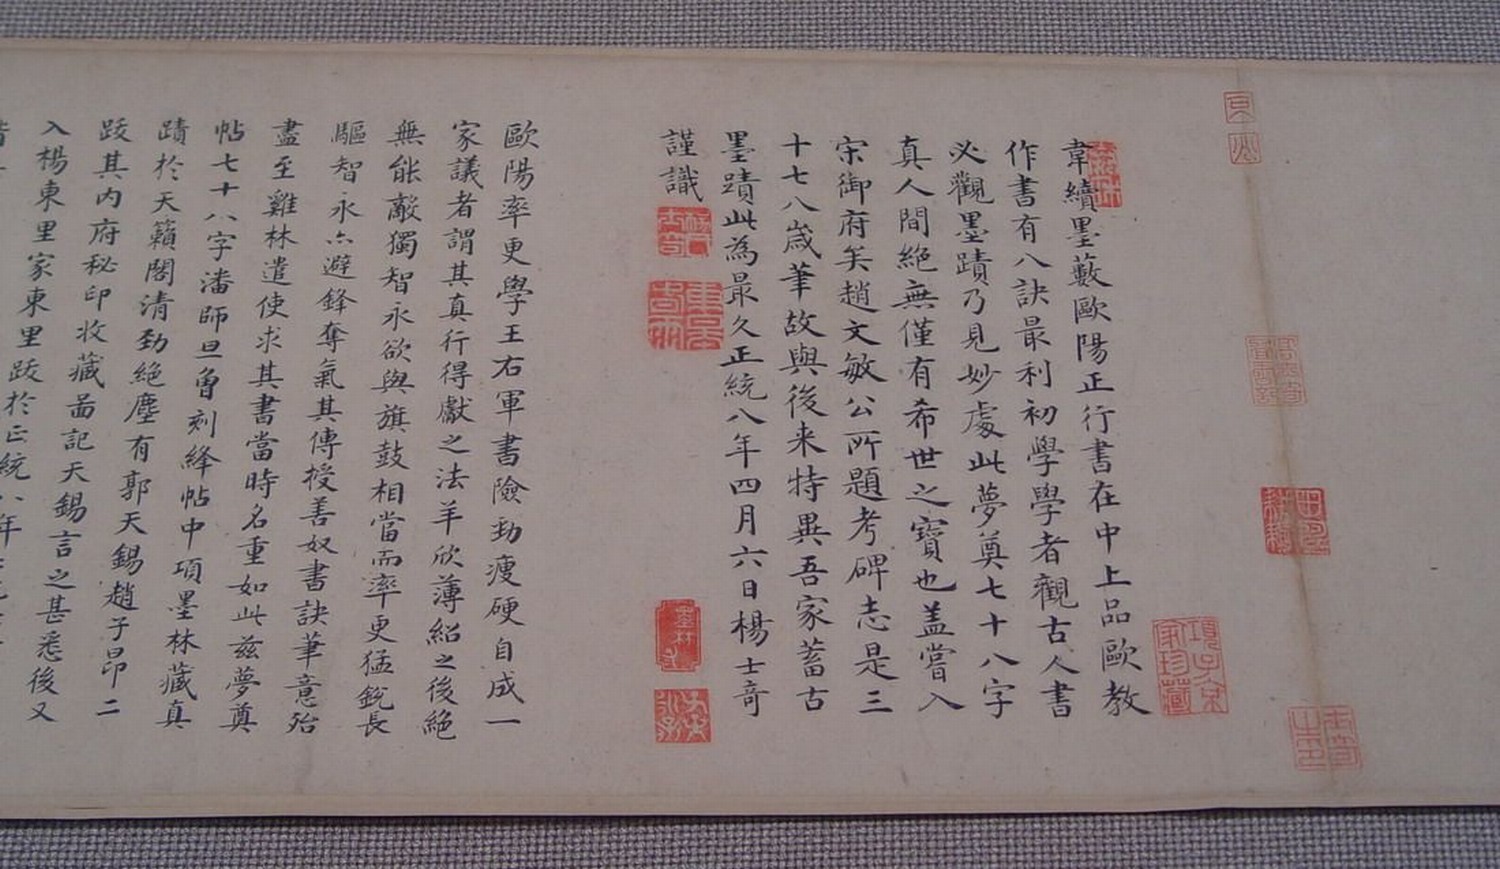 韋續墨藪歐陽正行書在中上品歐教
作書有八訣最利初學學者觀古人書
必觀墨蹟乃見妙處此夢奠七十八字
真人間絕無僅有希世之寶也盖嘗入
宋御府矣趙文敏公所題考碑志是三
十七八歲筆故與後来特異吾家蓄古
墨蹟此為最久正統八年四月六日楊士奇
謹識
歐陽率更學王右軍書險勁瘦硬自成一
家議者謂其真行得獻之法羊欣薄紹之後絕
無能敵獨智永欲與旗鼓相當而率更猛銳長
驅智永亦避鋒奪氣其傳授善奴書訣筆意殆
盡至雞林遣使求其書當時名重如此兹夢奠
帖七十八字潘師旦曾刻絳帖中項墨林藏真
蹟於天籟閣清勁絕塵有郭天錫趙子昂二
跋其內府秘印收藏啚記天錫言之甚悉後又
入楊東里家東里跋於正統八年
項子京
家珍藏